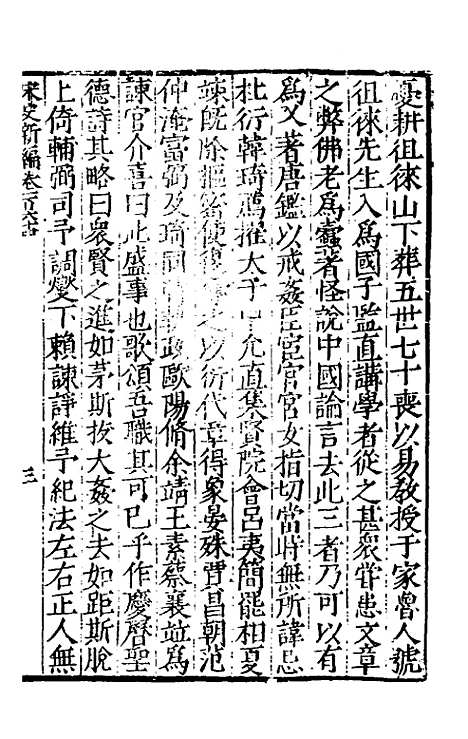 憂耕徂徠山下葬五世七十喪以易教授于家魯人號
徂徠先生入爲國子監直講學者從之甚衆嘗患文章
之弊佛老爲蠹著怪說中國論言去此三者乃可以有
爲又著唐鑑以戒姦臣宦官宮女指切當時無所諱忌
杜衍韓琦薦擢太子中允直集賢院會呂夷簡罷相夏
竦旣除樞密使復之以衍代章得象晏殊賈昌朝范
仲淹富弼及琦同時執政歐陽脩余靖王素蔡襄並爲
諫官介喜曰此盛事也歌頌吾職其可已乎作慶曆聖
德詩其略曰衆賢之進如茅斯拔大姦之去如距斯脫
上倚輔弼司予調燮下賴諫諍維予紀法左右正人無
宋史新編卷一百六十四 三